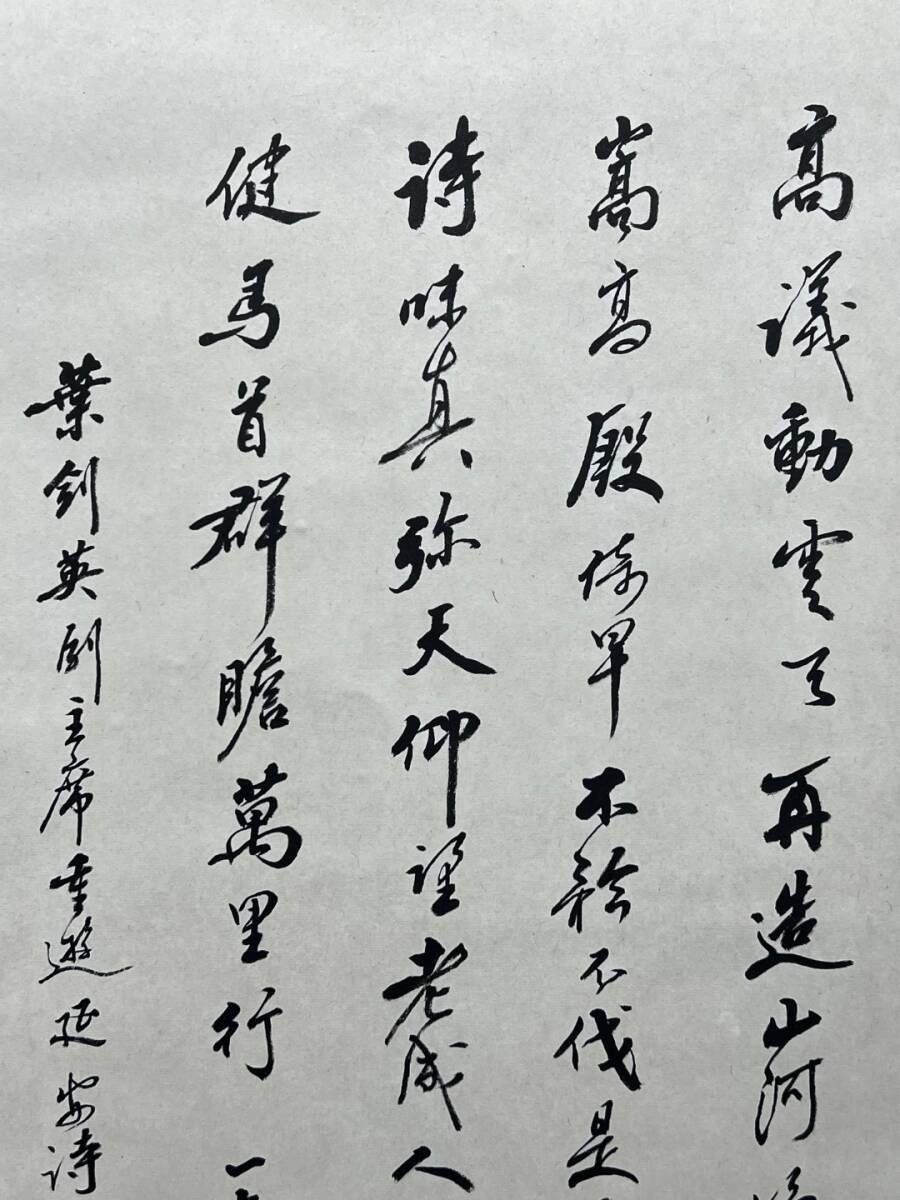 高議動雲天再造山河
嵩高殿倚旱不矜不伐是
詩味真弥天仰望老成人
健馬首群瞻萬里行一
葉劍英副主席重遊延安詩